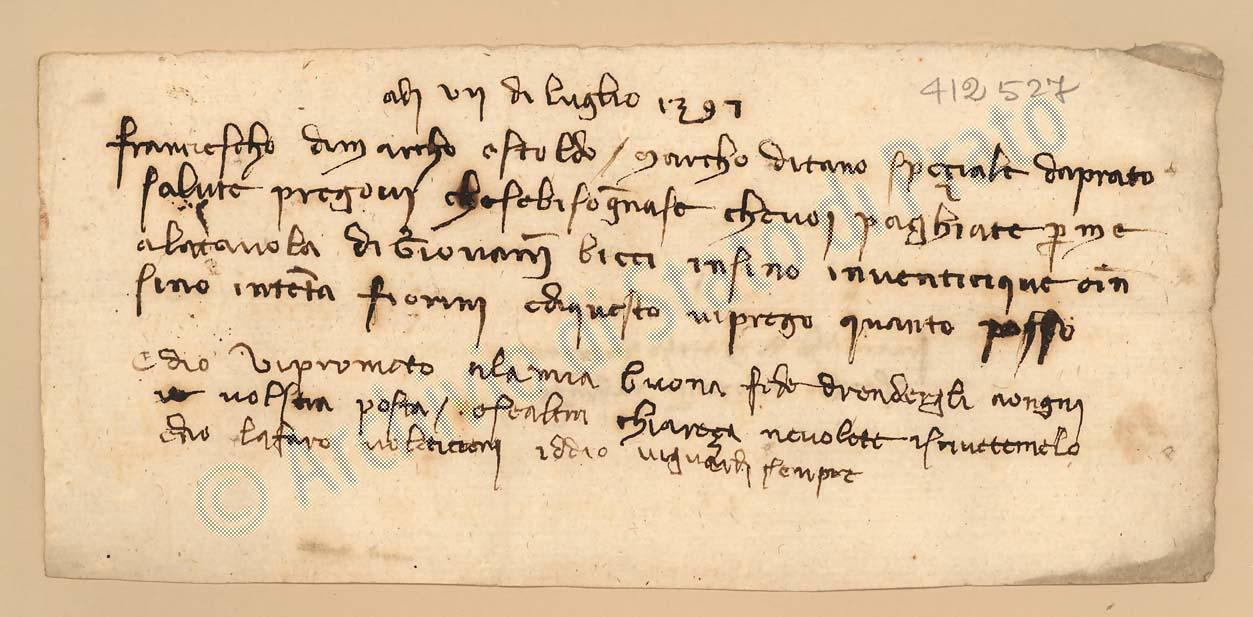 412527
adj vij di luglio 1397
francescho dimarcho estoldo / marcho ditano speziale daprato
salute pregovj chesebisognase chevoj paghiate per me
alatavola digiovanni bicci insino inventicique oin
sino intenta fiorini ediquesto viprego quanto posso
Edio viprometo alamia buona fede direndergli aongni
vostra posta / esealtra chiareza nevolete iscrivetemelo
edio lafaro volentieri iddio viguardi senpre
© Archivio di Stato di Prato